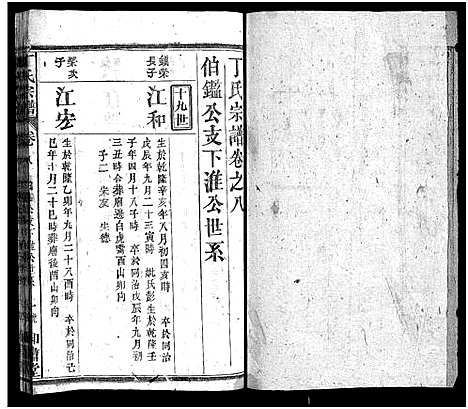 丁氏宗譜卷之八
伯鑑公支下淮公世系
十九世
鎮榮
長子
江和
生於乾隆辛亥年八月初四亥時 卒於同治
戊辰年九月二十三寅時 姚氏彭生於乾隆壬
子年四月十八子時 卒於同治戊辰年九月初
三丑時合葬廟邊白虎嘴酉山卯向
子二 朱友 朱德
榮次
子
江宏
生於乾隆乙卯年九月二十八酉時 卒於同治己
巳年十月二十巳時葬廟後酉山卯向
丁氏宗譜
卷八